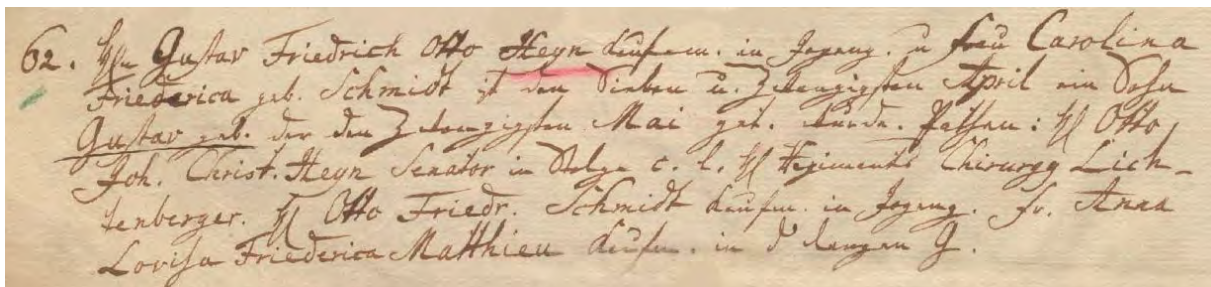 62. Hrn Gustav Friedrich Otto Heyn Kaufm. in Jopeng. u Frau Carolina
Friederica geb. Schmidt ist den Sieben u. Zwanzigsten April ein Sohn
Gustav geb. der den Zwanzigsten Mai get. wurde. Pathen: H Otto
Joh. Christ. Heyn Senator in Stolpe c. l. H Regiments Chirurg Lich-
tenberger. H Otto Friedr. Schmidt Kaufm. in Jopeng. Fr. Anna
Lovisa Friederica Matthieu Kaufm. in d langen G.